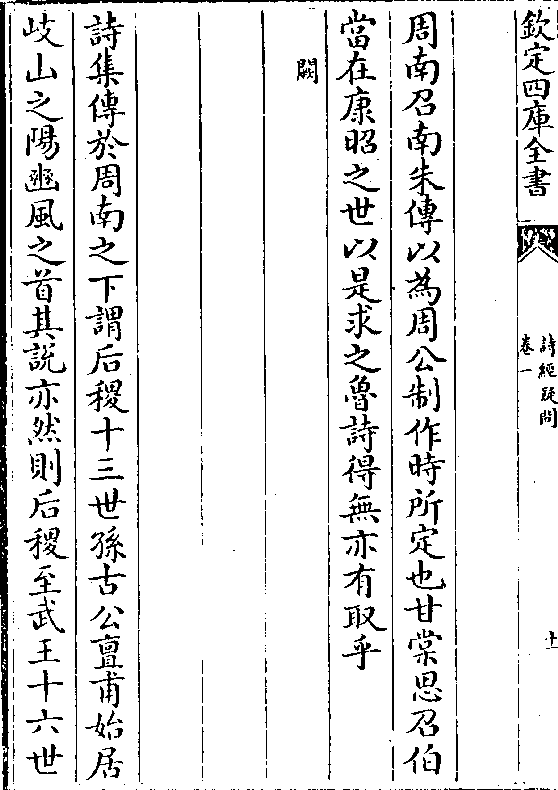 欽定四庫全書
詩經疑問
卷一
十一
周南召南朱傳以為周公制作時所定也甘棠思召伯
當在康昭之世以是求之魯詩得無亦有取乎
闕
詩集傳於周南之下謂后稷十三世孫古公亶甫始居
岐山之陽豳風之首其説亦然則后稷至武王十六世